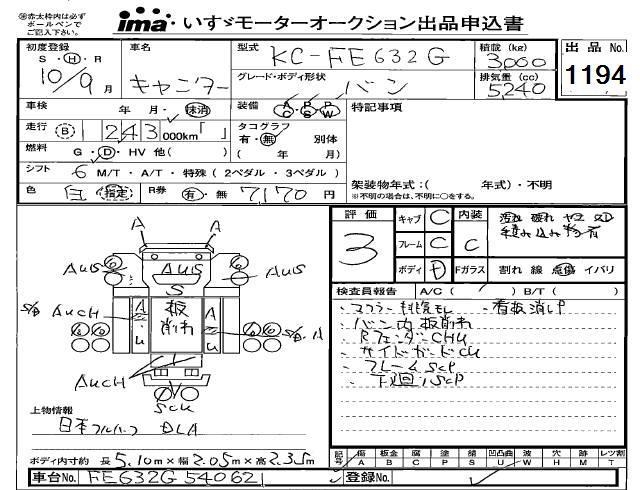 ㊟赤太枠内は必ず
ボールペンで
ご記入下さい。
ima いすゞモーターオークション出品申込書
初度登録 車名 型式 KC-FE632G 積載 (kg) 3,000 出品 No. 1194
S・H・R 10/9月 キャンター グレード・ボディ形状 バン 排気量 (cc) 5,240
車検 年 月 抹消 装備 AC PS PW 特記事項
走行 B 243 000km「 」 タコグラフ 有・無 別体 ( 年 月)
燃料 G・D・HV 他( )
シフト 6 M/T・A/T・特殊 (2ペダル・3ペダル)
架装物年式:( 年式)・不明
※不明の場合は、不明に○をする。
色 白 指定 R券 有・無 7170 円
評価 3 キャブ C 内装 C 汚れ 破れ ヤニ
フレーム C
ボディ D Fガラス 割れ 線 点傷 イバリ
検査員報告 A/C ( ) B/T ( )
・マフラー排気モレ ・看板消し
・バン内板削れ
・RフェンダーCHU
・サイドガードCU
・フレームSCP
・下廻りSCP
A A
AUS AUS AUS
S
AUCH A 板削れ A
U U
AUCH
SCU
上物情報
日本フルハーフ DLA
ボディ内寸約 長 5.10m×幅 2.05m×高 2.35m
記号 傷 A 板金 B 腐 C 塗 P 錆 S 凹凸曲 U 波 W 穴 H 跡 M レツ割 T
車台No. FE632G 540621 登録No.